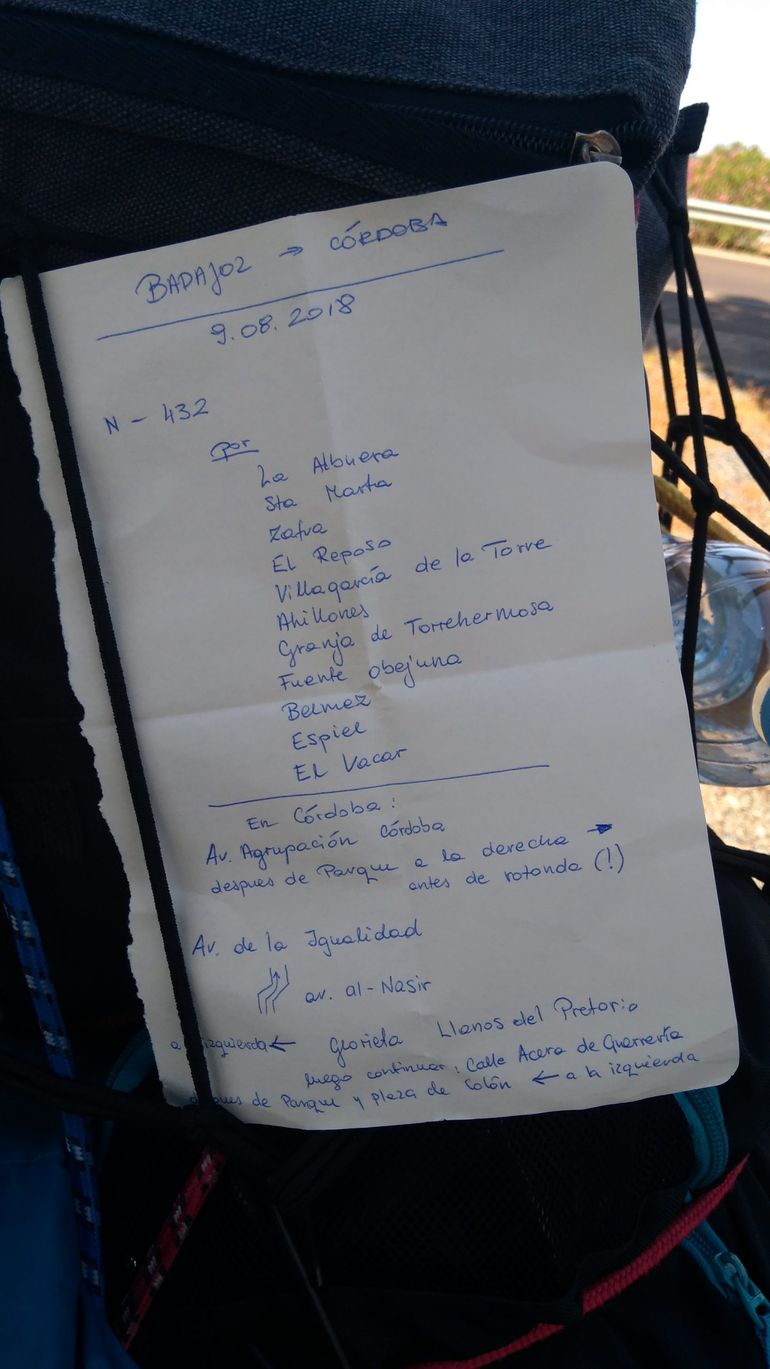 BADAJOZ → CÓRDOBA
9.08.2018
N - 432
por
La Albuera
Sta Marta
Zafra
El Reposo
Villagarcía de la Torre
Ahillones
Granja de Torrehermosa
Fuente Obejuna
Belmez
Espiel
El Vacar
En Córdoba:
Av. Agrupación Córdoba
despues de Parque a la derecha →
antes de rotonda (!)
Av. de la Igualdad
av. al-Nasir
a izquierda ← Glorieta Llanos del Pretorio
luego continuar: Calle Acera de Guerrería
de Parque y plaza de Colón ← a la izquierda